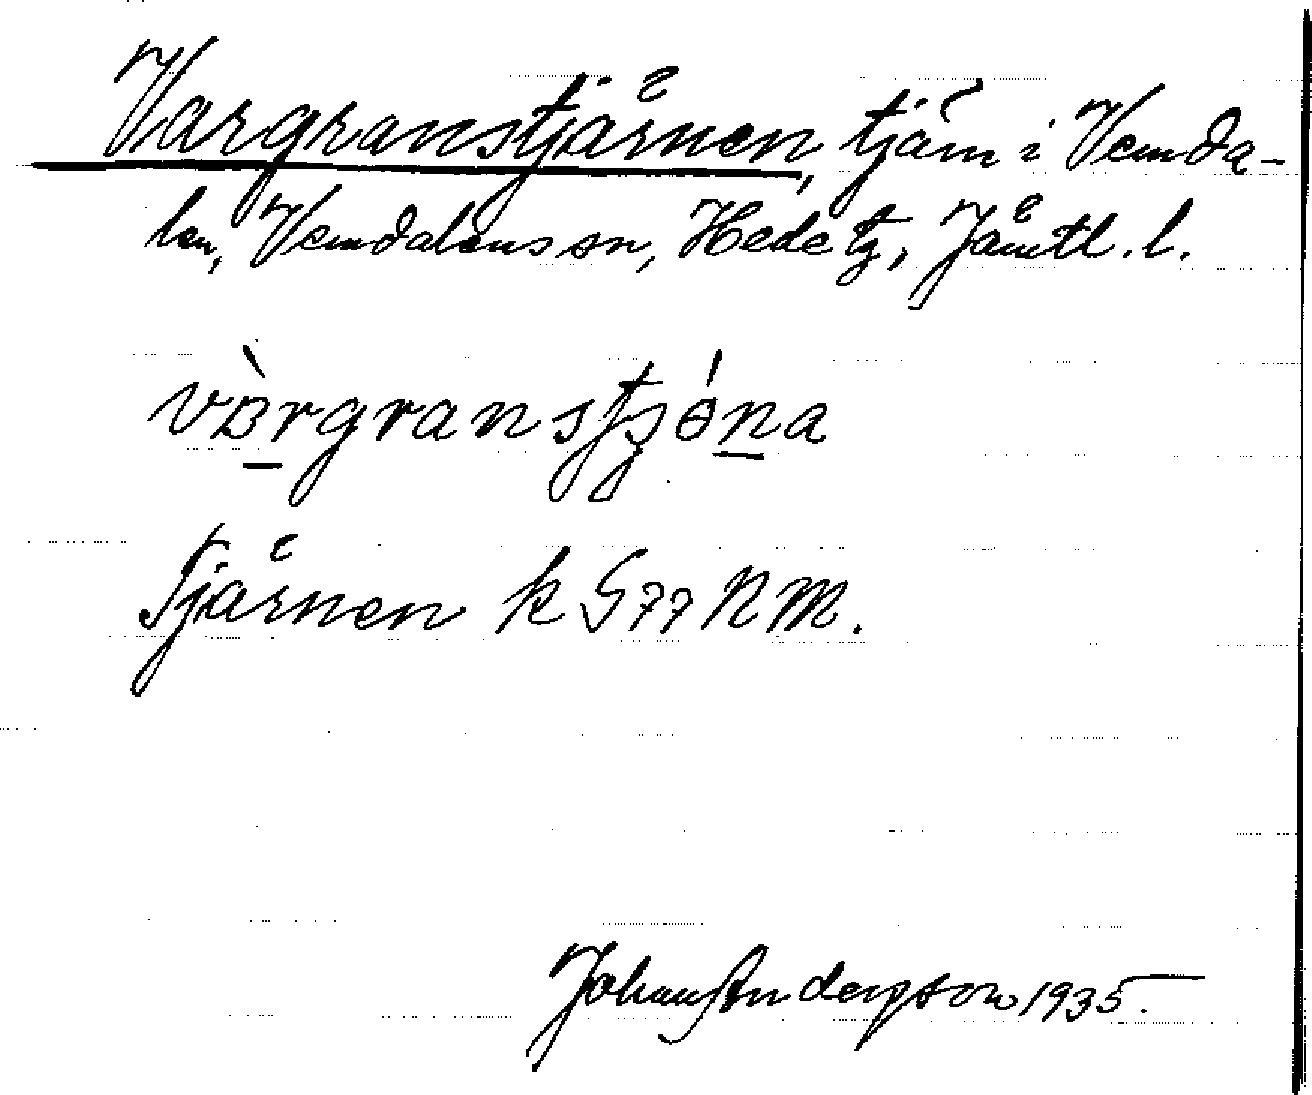 Vargranstjärnen, tjärn i Vemda-
len, Vemdalens sn, Hede tg, Jämtl. l.
vàrgranstjǿna
Tjärnen k G77 NM.
Johan Anderson 1935.